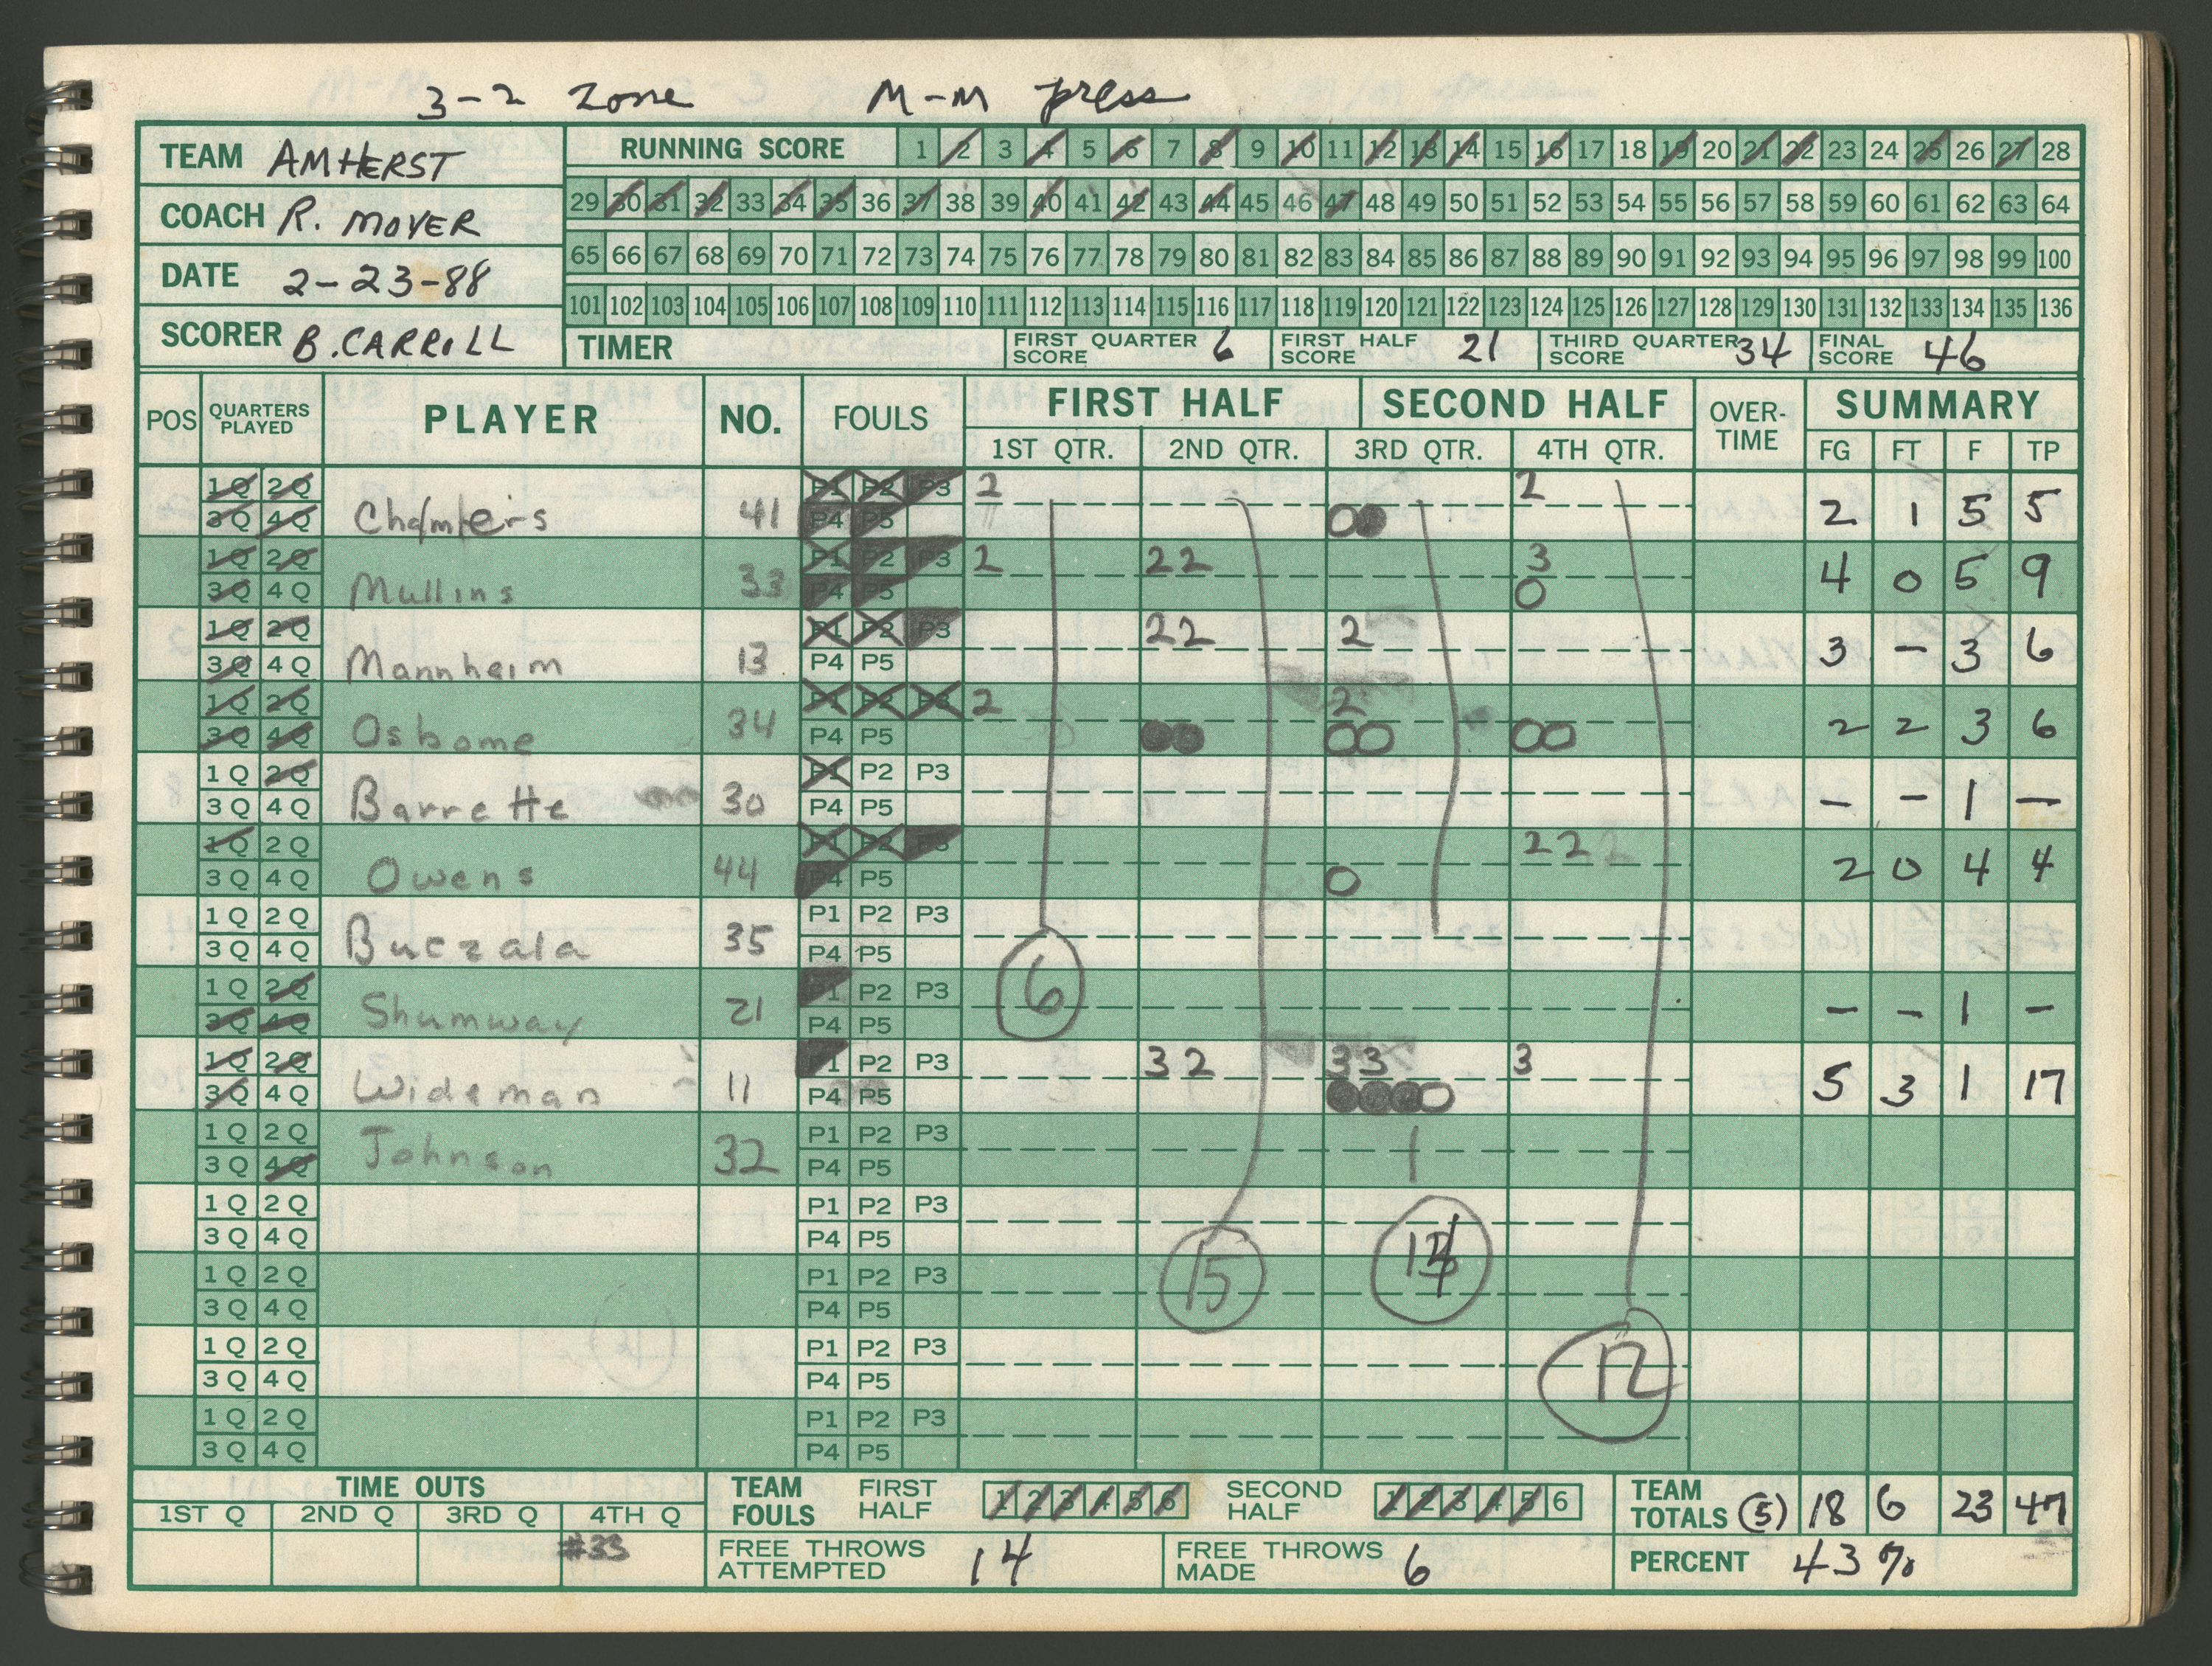 3-2 zone M-M press
TEAM AMHERST
COACH R. MOYER
DATE 2-23-88
SCORER B. CARROLL
RUNNING SCORE 1 2 3 4 5 6 7 8 9 10 11 12 13 14 15 16 17 18 19 20 21 22 23 24 25 26 27 28
29 30 31 32 33 34 35 36 37 38 39 40 41 42 43 44 45 46 47 48 49 50 51 52 53 54 55 56 57 58 59 60 61 62 63 64
65 66 67 68 69 70 71 72 73 74 75 76 77 78 79 80 81 82 83 84 85 86 87 88 89 90 91 92 93 94 95 96 97 98 99 100
101 102 103 104 105 106 107 108 109 110 111 112 113 114 115 116 117 118 119 120 121 122 123 124 125 126 127 128 129 130 131 132 133 134 135 136
TIMER FIRST QUARTER SCORE 6 FIRST HALF SCORE 21 THIRD QUARTER SCORE 34 FINAL SCORE 46
POS QUARTERS PLAYED PLAYER NO. FOULS FIRST HALF SECOND HALF OVER-TIME SUMMARY
1ST QTR. 2ND QTR. 3RD QTR. 4TH QTR. FG FT F TP
1Q 2Q P1 P2 P3 2 2
3Q 4Q Chambers 41 P4 P5 2 1 5 5
1Q 2Q P1 P2 P3 2 22 3
3Q 4Q Mullins 33 P4 P5 4 0 5 9
1Q 2Q P1 P2 P3 22 2
3Q 4Q Mannheim 13 P4 P5 3 - 3 6
1Q 2Q P1 P2 P3 2 2
3Q 4Q Osborne 34 P4 P5 2 2 3 6
1Q 2Q P1 P2 P3
3Q 4Q Barrette 30 P4 P5 - - 1 -
1Q 2Q P1 P2 P3 22
3Q 4Q Owens 44 P4 P5 2 0 4 4
1Q 2Q P1 P2 P3
3Q 4Q Buczala 35 P4 P5
6
1Q 2Q P1 P2 P3
3Q 4Q Shumway 21 P4 P5 - - 1 -
1Q 2Q P1 P2 P3 32 33 3
3Q 4Q Wideman 11 P4 P5 5 3 1 17
1Q 2Q P1 P2 P3
3Q 4Q Johnson 32 P4 P5
1Q 2Q P1 P2 P3
3Q 4Q P4 P5
15
1Q 2Q P1 P2 P3
3Q 4Q P4 P5
1Q 2Q P1 P2 P3
3Q 4Q P4 P5
12
1Q 2Q P1 P2 P3
3Q 4Q P4 P5
TIME OUTS
1ST Q 2ND Q 3RD Q 4TH Q
#33
TEAM FOULS FIRST HALF 1 2 3 4 5 6 SECOND HALF 1 2 3 4 5 6
TEAM TOTALS (5) 18 6 23 47
FREE THROWS ATTEMPTED 14 FREE THROWS MADE 6 PERCENT 43%